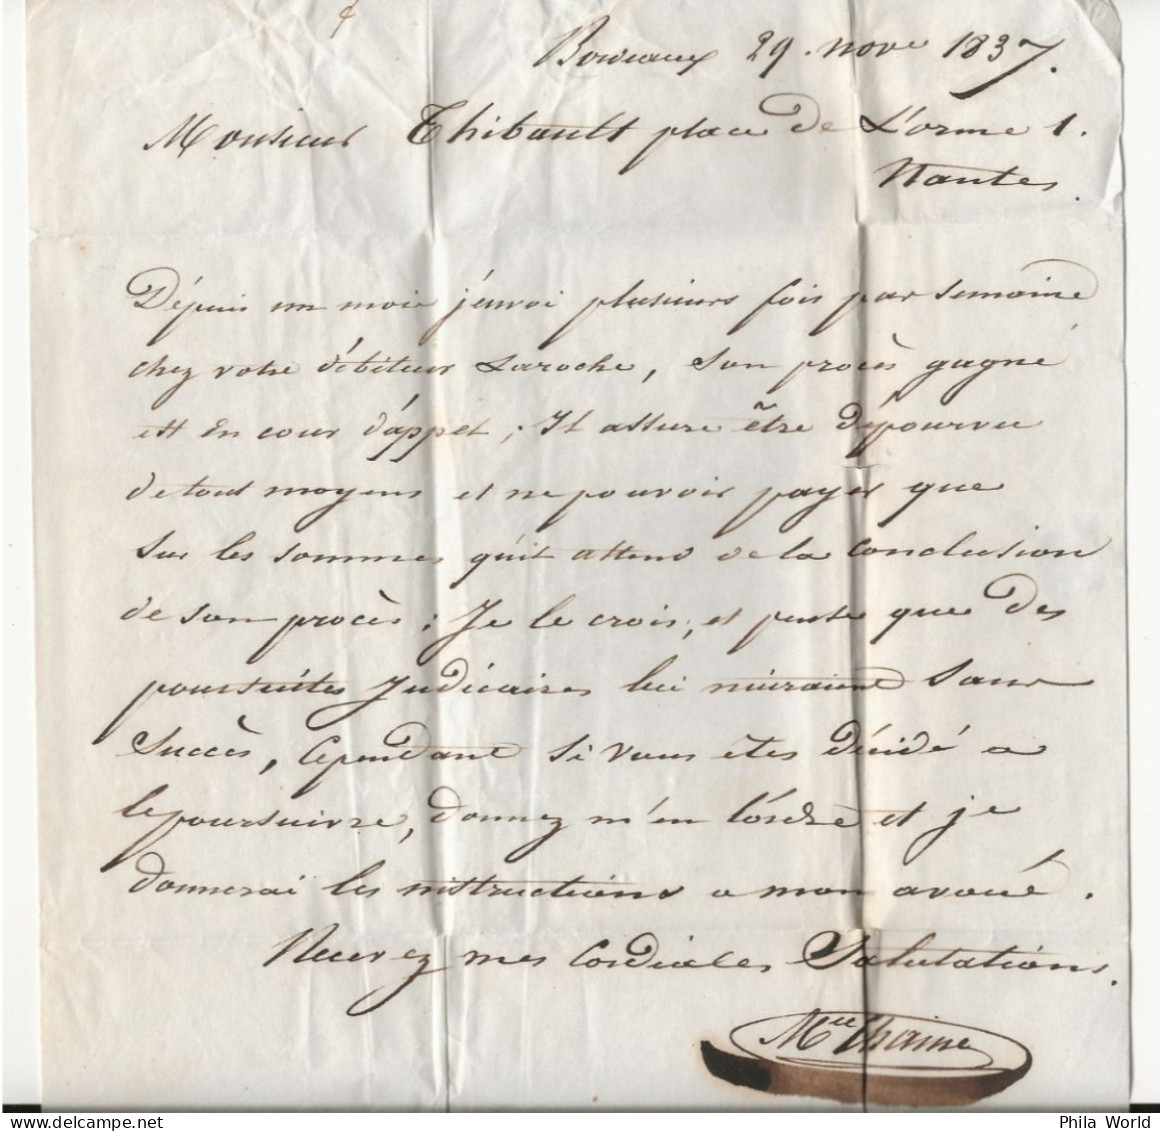 Bordeaux 29 nov.e 1837.
Monsieur Thibault place de L'orme 1.
Nantes.
Dépuis un mois j'envoi plusieurs fois par semaine
chez votre débiteur Laroche, son procès gagné
est en cour d'appel; Il assure être dépourvu
de tout moyens et ne pouvoir payer que
sur les sommes qu'il attend de la Conclusion
de son procès; Je le crois, et pense que des
poursuites Judiciaires lui nuiraient sans
Succès, Cependant si vous êtes décidé a
le poursuivre, donnez m'en l'ordre et je
donnerai les instructions a mon avoué.
Recevez mes Cordiales Salutations.
M.el Chaine
Phila World